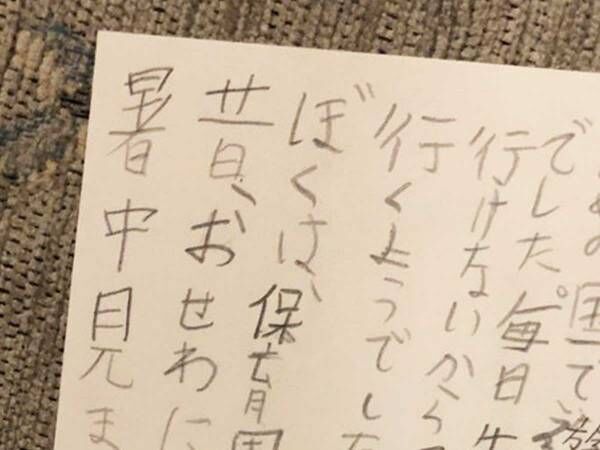 暑中見ま
昔、おせわに
ぼくは、保育園
行くようでした
行けないから
でした。毎日
の国で